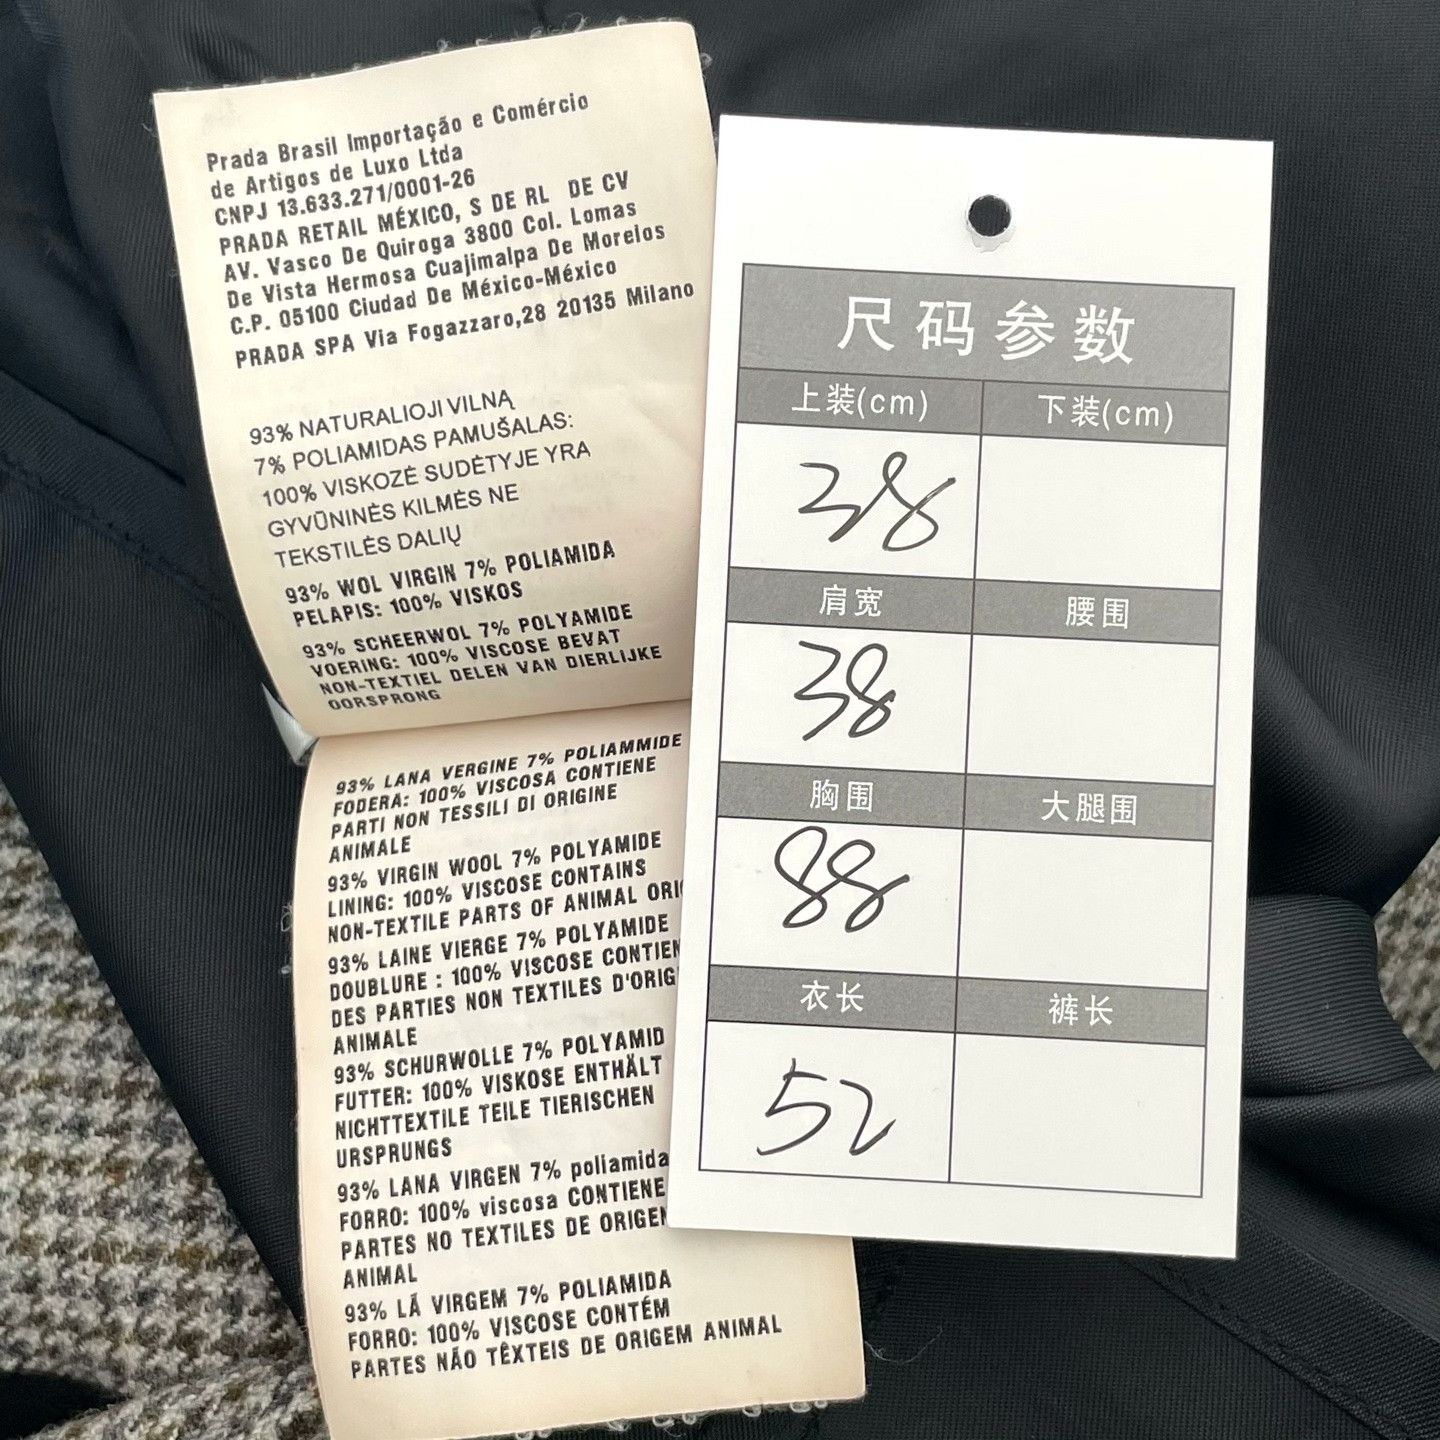 Prada Brasil Importação e Comércio
de Artigos de Luxo Ltda
CNPJ 13.633.271/0001-26
PRADA RETAIL MÉXICO, S DE RL DE CV
AV. Vasco De Quiroga 3800 Col. Lomas
De Vista Hermosa Cuajimalpa De Morelos
C.P. 05100 Ciudad De México-México
PRADA SPA Via Fogazzaro,28 20135 Milano
93% NATURALIOJI VILNĄ
7% POLIAMIDAS PAMUŠALAS:
100% VISKOZĖ SUDĖTYJE YRA
GYVŪNINĖS KILMĖS NE
TEKSTILĖS DALIŲ
93% WOL VIRGIN 7% POLIAMIDA
PELAPIS: 100% VISKOS
93% SCHEERWOL 7% POLYAMIDE
VOERING: 100% VISCOSE BEVAT
NON-TEXTIEL DELEN VAN DIERLIJKE
OORSPRONG
93% LANA VERGINE 7% POLIAMMIDE
FODERA: 100% VISCOSA CONTIENE
PARTI NON TESSILI DI ORIGINE
ANIMALE
93% VIRGIN WOOL 7% POLYAMIDE
LINING: 100% VISCOSE CONTAINS
NON-TEXTILE PARTS OF ANIMAL ORI
93% LAINE VIERGE 7% POLYAMIDE
DOUBLURE : 100% VISCOSE CONTIEN
DES PARTIES NON TEXTILES D'ORIG
ANIMALE
93% SCHURWOLLE 7% POLYAMID
FUTTER: 100% VISKOSE ENTHÄLT
NICHTTEXTILE TEILE TIERISCHEN
URSPRUNGS
93% LANA VIRGEN 7% poliamida
FORRO: 100% viscosa CONTIENE
PARTES NO TEXTILES DE ORIGEN
ANIMAL
93% LÃ VIRGEM 7% POLIAMIDA
FORRO: 100% VISCOSE CONTÉM
PARTES NÃO TÊXTEIS DE ORIGEM ANIMAL
尺码参数
上装(cm) 下装(cm)
38
肩宽 腰围
38
胸围 大腿围
88
衣长 裤长
52